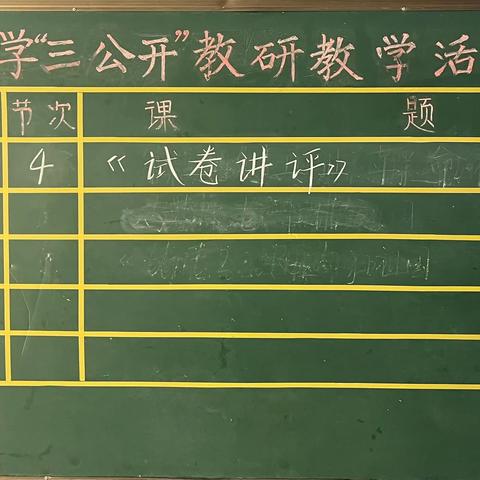 学“三公开”教研教学活
节次 课 题
4 《试卷讲评》